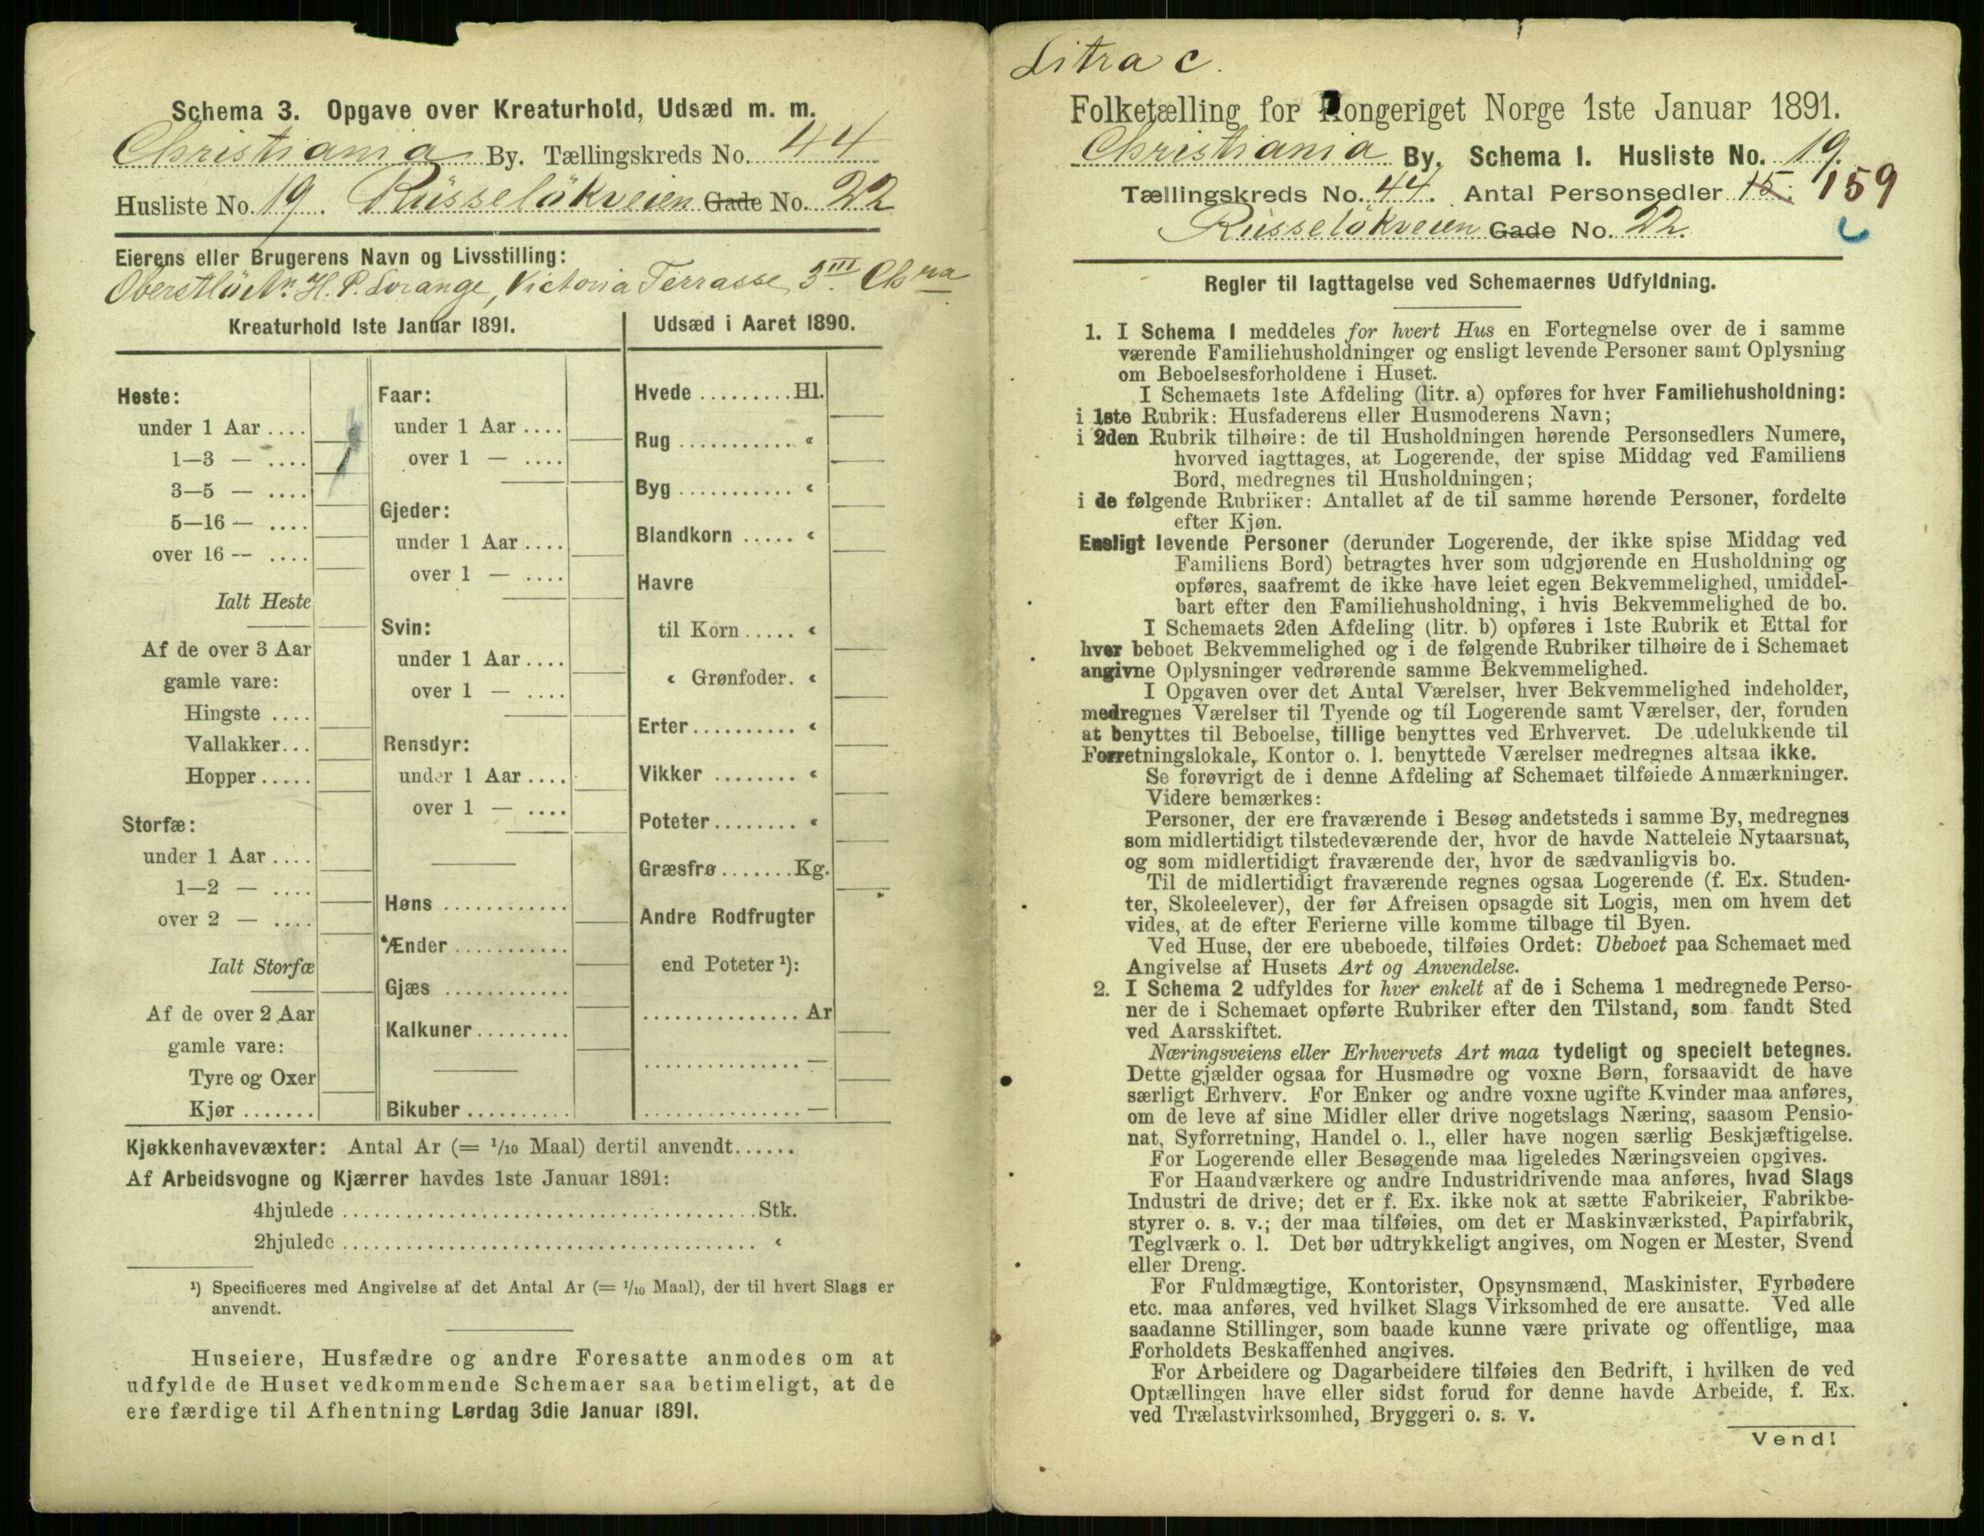 Schema 3. Opgave over Kreaturhold, Udsæd m. m.
Christiania By. Tællingskreds No. 44
Husliste No. 19. Rüsseløkveien Gade No. 22
Eierens eller Brugerens Navn og Livsstilling:
Oberstløitn. H. P. Lorange, Victoria Terrasse 3 III Chra
Kreaturhold 1ste Januar 1891.
Heste:
under 1 Aar ....
1—3 — ....
3—5 — ....
5—16 — ....
over 16 — ....
Ialt Heste
Af de over 3 Aar
gamle vare:
Hingste ....
Vallakker...
Hopper .....
Storfæ:
under 1 Aar ....
1—2 — ....
over 2 — ....
Ialt Storfæ
Af de over 2 Aar
gamle vare:
Tyre og Oxer
Kjør .......
Faar:
under 1 Aar ....
over 1 — ....
Gjeder:
under 1 Aar ....
over 1 — ....
Svin:
under 1 Aar ....
over 1 — ....
Rensdyr:
under 1 Aar ....
over 1 — ....
Høns ............
Ænder ...........
Gjæs ............
Kalkuner.........
Bikuber ..........
Udsæd i Aaret 1890.
Hvede .........Hl.
Rug ........... «
Byg ........... «
Blandkorn ..... «
Havre
til Korn ..... «
« Grønfoder. «
Erter.......... «
Vikker ........ «
Poteter........ «
Græsfrø.......Kg.
Andre Rodfrugter
end Poteter ¹):
............... Ar
............... —
............... —
Kjøkkenhavevæxter: Antal Ar (= 1/10 Maal) dertil anvendt......
Af Arbeidsvogne og Kjærrer havdes 1ste Januar 1891:
4hjulede ........................................Stk.
2hjulede ........................................ «
¹) Specificeres med Angivelse af det Antal Ar (= 1/10 Maal), der til hvert Slags er
anvendt.
Huseiere, Husfædre og andre Foresatte anmodes om at
udfylde de Huset vedkommende Schemaer saa betimeligt, at de
ere færdige til Afhentning Lørdag 3die Januar 1891.
Litra c.
Folketælling for Kongeriget Norge 1ste Januar 1891.
Christiania By. Schema 1. Husliste No. 19.
Tællingskreds No. 44. Antal Personsedler 15. 159
Rüsseløkveien Gade No. 22.
Regler til Iagttagelse ved Schemaernes Udfyldning.
1. I Schema 1 meddeles for hvert Hus en Fortegnelse over de i samme
værende Familiehusholdninger og ensligt levende Personer samt Oplysning
om Beboelsesforholdene i Huset.
I Schemaets 1ste Afdeling (litr. a) opføres for hver Familiehusholdning:
i 1ste Rubrik: Husfaderens eller Husmoderens Navn;
i 2den Rubrik tilhøire: de til Husholdningen hørende Personsedlers Numere,
hvorved iagttages, at Logerende, der spise Middag ved Familiens
Bord, medregnes til Husholdningen;
i de følgende Rubriker: Antallet af de til samme hørende Personer, fordelte
efter Kjøn.
Ensligt levende Personer (derunder Logerende, der ikke spise Middag ved
Familiens Bord) betragtes hver som udgjørende en Husholdning og
opføres, saafremt de ikke have leiet egen Bekvemmelighed, umiddel-
bart efter den Familiehusholdning, i hvis Bekvemmelighed de bo.
I Schemaets 2den Afdeling (litr. b) opføres i 1ste Rubrik et Ettal for
hver beboet Bekvemmelighed og i de følgende Rubriker tilhøire de i Schemaet
angivne Oplysninger vedrørende samme Bekvemmelighed.
I Opgaven over det Antal Værelser, hver Bekvemmelighed indeholder,
medregnes Værelser til Tyende og til Logerende samt Værelser, der, foruden
at benyttes til Beboelse, tillige benyttes ved Erhvervet. De udelukkende til
Forretningslokale, Kontor o. l. benyttede Værelser medregnes altsaa ikke.
Se forøvrigt de i denne Afdeling af Schemaet tilføiede Anmærkninger.
Videre bemærkes:
Personer, der ere fraværende i Besøg andetsteds i samme By, medregnes
som midlertidigt tilstedeværende der, hvor de havde Natteleie Nytaarsnat,
og som midlertidigt fraværende der, hvor de sædvanligvis bo.
Til de midlertidigt fraværende regnes ogsaa Logerende (f. Ex. Studen-
ter, Skoleelever), der før Afreisen opsagde sit Logis, men om hvem det
vides, at de efter Ferierne ville komme tilbage til Byen.
Ved Huse, der ere ubeboede, tilføies Ordet: Ubeboet paa Schemaet med
Angivelse af Husets Art og Anvendelse.
2. I Schema 2 udfyldes for hver enkelt af de i Schema 1 medregnede Perso-
ner de i Schemaet opførte Rubriker efter den Tilstand, som fandt Sted
ved Aarsskiftet.
Næringsveiens eller Erhvervets Art maa tydeligt og specielt betegnes.
Dette gjælder ogsaa for Husmødre og voxne Børn, forsaavidt de have
særligt Erhverv. For Enker og andre voxne ugifte Kvinder maa anføres,
om de leve af sine Midler eller drive nogetslags Næring, saasom Pensio-
nat, Syforretning, Handel o. l., eller have nogen særlig Beskjæftigelse.
For Logerende eller Besøgende maa ligeledes Næringsveien opgives.
For Haandværkere og andre Industridrivende maa anføres, hvad Slags
Industri de drive; det er f. Ex. ikke nok at sætte Fabrikeier, Fabrikbe-
styrer o. s. v.; der maa tilføies, om det er Maskinværksted, Papirfabrik,
Teglværk o. l. Det bør udtrykkeligt angives, om Nogen er Mester, Svend
eller Dreng.
For Fuldmægtige, Kontorister, Opsynsmænd, Maskinister, Fyrbødere
etc. maa anføres, ved hvilket Slags Virksomhed de ere ansatte. Ved alle
saadanne Stillinger, som baade kunne være private og offentlige, maa
Forholdets Beskaffenhed angives.
For Arbeidere og Dagarbeidere tilføies den Bedrift, i hvilken de ved
Optællingen have eller sidst forud for denne havde Arbeide, f. Ex.
ved Trælastvirksomhed, Bryggeri o. s. v.
Vend!